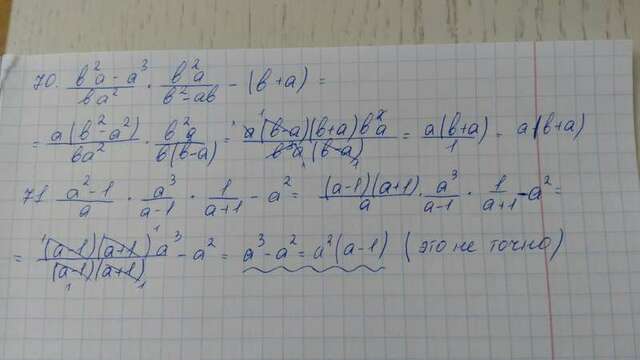 70. (в²a - a³)/(вa²) · (в²a)/(в² - aв) - (в + a) =
= (a(в² - a²))/(вa²) · (в²a)/(в(в - a)) = (a(в - a)(в + a)в²a)/(в²a²(в - a)) = (a(в + a))/1 - a(в + a)
71 (a² - 1)/a · a³/(a - 1) · 1/(a + 1) - a² = ((a - 1)(a + 1))/a · a³/(a - 1) · 1/(a + 1) - a² =
= ((a - 1)(a + 1)a³)/((a - 1)(a + 1)) - a² = a³ - a² = a²(a - 1) (это не точно)